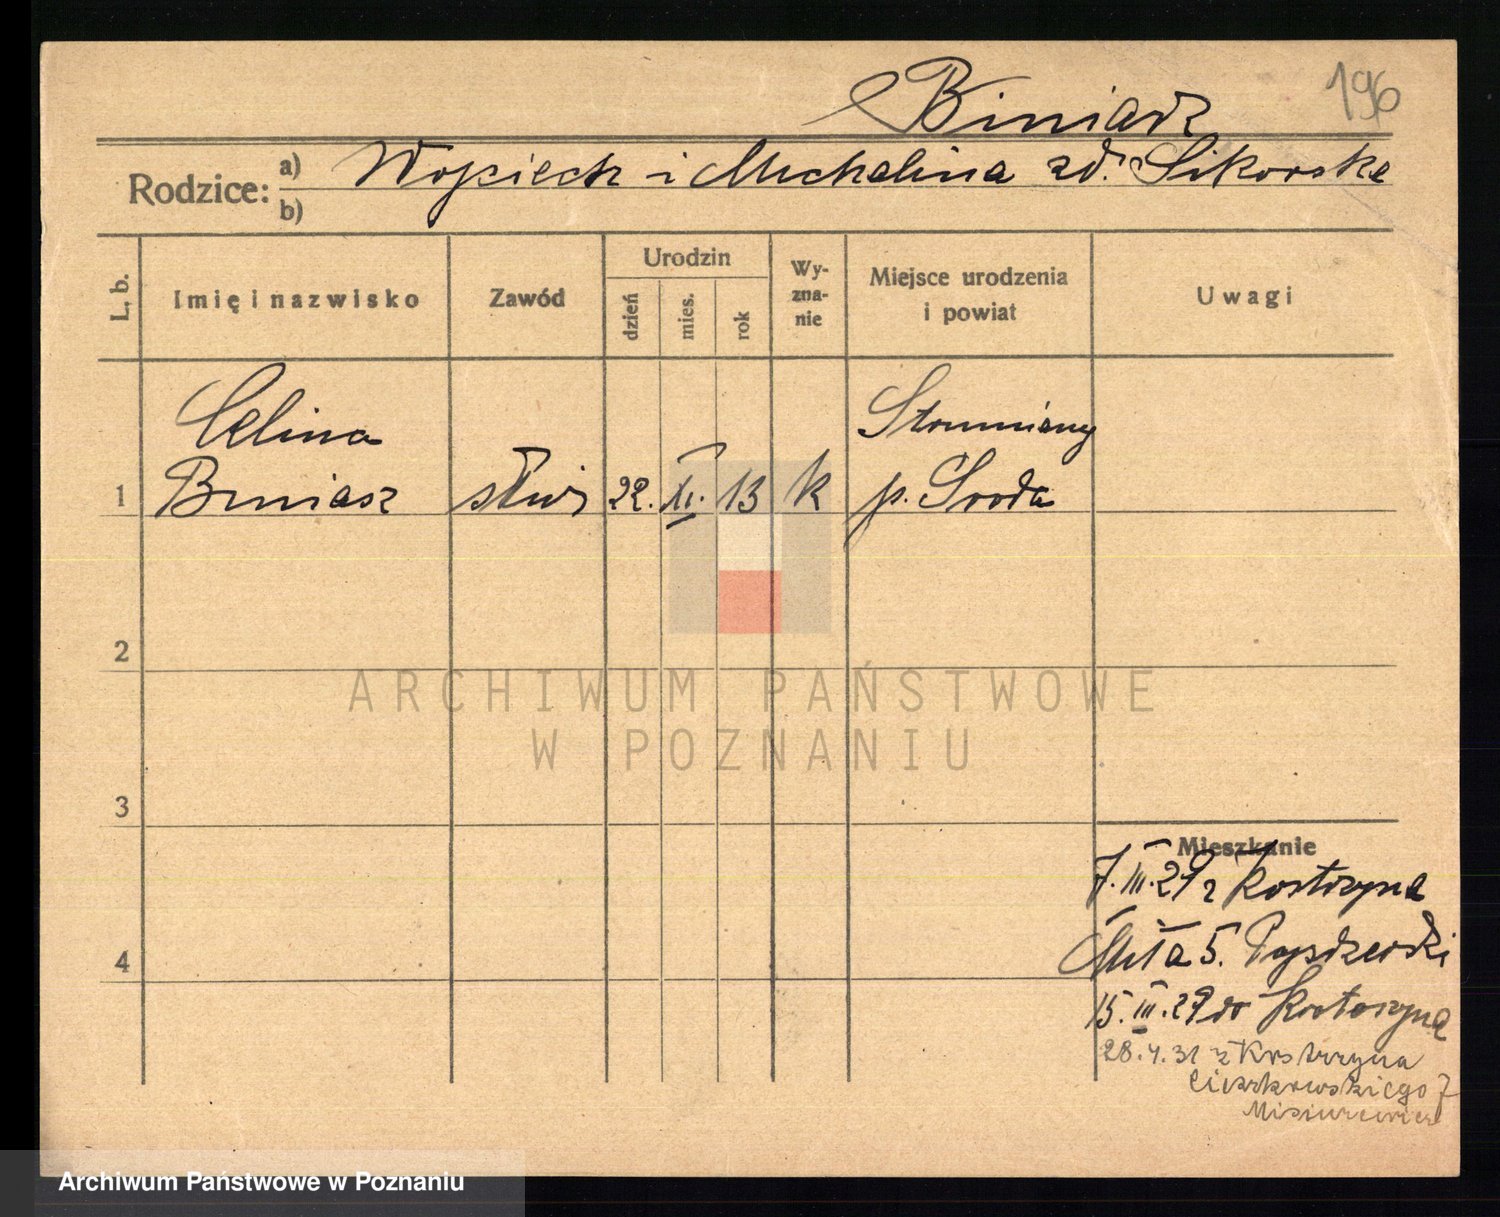 Biniasz
196
Rodzice: a) Wojciech i Michalina zd. Sikorska
b)
L. b. Imię i nazwisko Zawód Urodzin dzień mies. rok Wyznanie Miejsce urodzenia i powiat Uwagi
Celina Słominiany
1 Biniasz służ 22. XI. 13 k p. Środa
2
3
Mieszkanie
7.III.29 z Kostrzyna
4 Miła 5.
15.III.29 do Kostrzyna
28.4.31 z Kostrzyna
Cieszkowskiego 7
Misiurewicz
ARCHIWUM PAŃSTWOWE
W POZNANIU
Archiwum Państwowe w Poznaniu